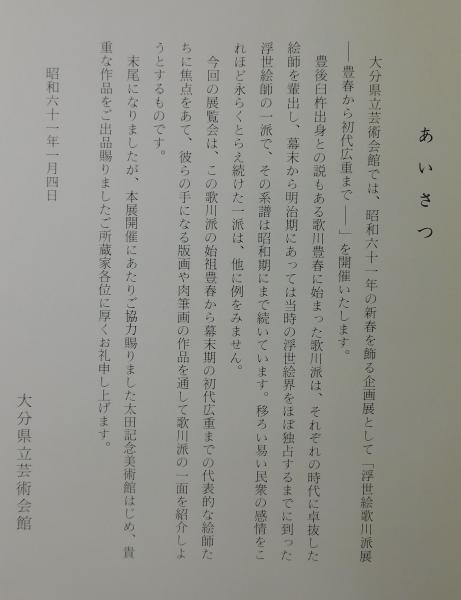 あいさつ
大分県立芸術会館では、昭和六十一年の新春を飾る企画展として「浮世絵歌川派展
――豊春から初代広重まで――」を開催いたします。
豊後臼杵出身との説もある歌川豊春に始まった歌川派は、それぞれの時代に卓抜した
絵師を輩出し、幕末から明治期にあっては当時の浮世絵界をほぼ独占するまでに到った
浮世絵師の一派で、その系譜は昭和期にまで続いています。移ろい易い民衆の感情をこ
れほど永らくとらえ続けた一派は、他に例をみません。
今回の展覧会は、この歌川派の始祖豊春から幕末期の初代広重までの代表的な絵師た
ちに焦点をあて、彼らの手になる版画や肉筆画の作品を通して歌川派の一面を紹介しよ
うとするものです。
末尾になりましたが、本展開催にあたりご協力賜りました太田記念美術館はじめ、貴
重な作品をご出品賜りましたご所蔵家各位に厚くお礼申し上げます。
昭和六十一年一月四日
大分県立芸術会館